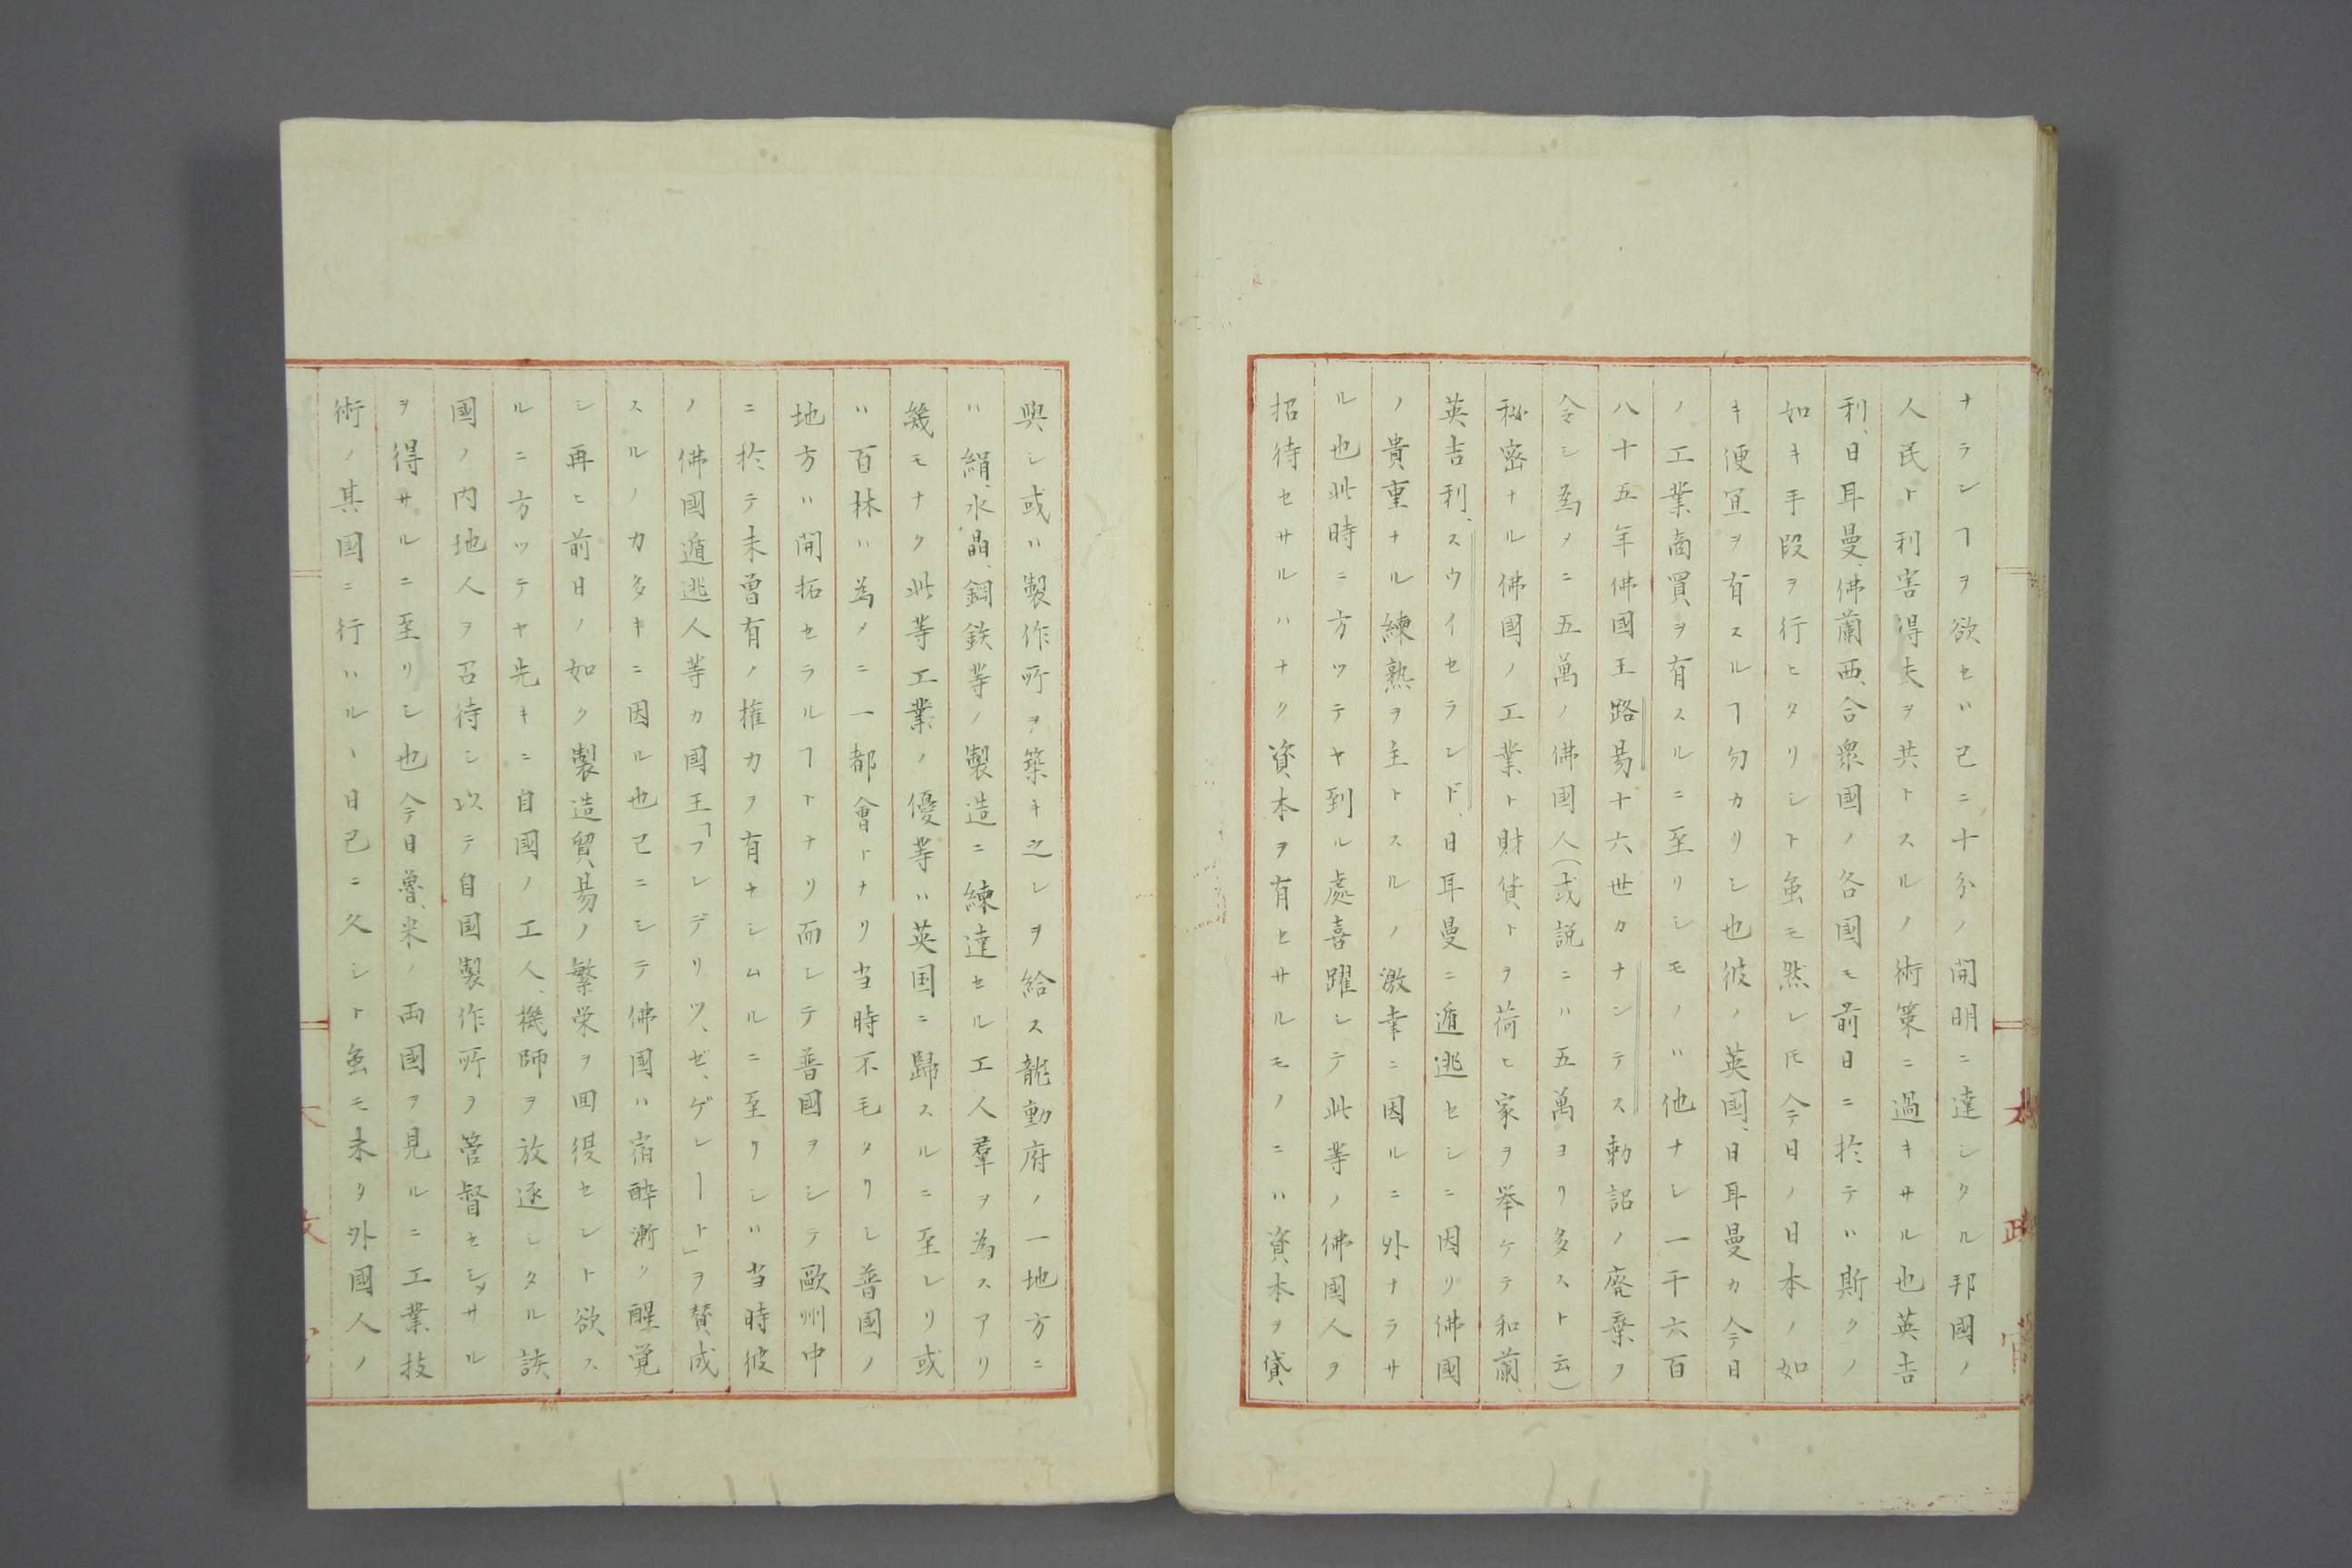 ナランヿヲ欲セハ已ニ十分ノ開明ニ達シタル邦國ノ
人民ト利害得失ヲ共トスルノ術策ニ過キサル也英吉
利、日耳曼、佛蘭西、合衆國ノ各国モ前日ニ於テハ斯クノ
如キ手段ヲ行ヒタリシト虽モ然レ𪜈今日ノ日本ノ如
キ便宜ヲ有スルヿ勿カリシ也彼ノ英国、日耳曼カ今日
ノ工業商買ヲ有スルニ至リシモノハ他ナシ一千六百
八十五年佛國王路易十六世カナンテス勅詔ノ廃棄ヲ
令シ為メニ五萬ノ佛國人(或説ニハ五萬ヨリ多スト云)
秘密ナル佛國ノ工業ト財貨トヲ荷ヒ家ヲ挙ケテ和蘭、
英吉利、スウイセランド、日耳曼ニ遁逃セシニ因リ佛國
ノ貴重ナル練熟ヲ主トスルノ激幸ニ因ルニ外ナラサ
ル也此時ニ方ツテヤ到ル處喜躍シテ此等ノ佛國人ヲ
招待セサルハナク資本ヲ有セサルモノニハ資本ヲ貸
與シ或ハ製作所ヲ築キ之レヲ給ス龍動府ノ一地方ニ
ハ絹、水晶、鋼鉄等ノ製造ニ練達セル工人羣ヲ為スアリ
幾モナク此等工業ノ優等ハ英国ニ歸スルニ至レリ或
ハ百林ハ為メニ一都會トナリ当時不毛タリシ普國ノ
地方ハ開拓セラルヿトナリ而シテ普國ヲシテ歐州中
ニ於テ未曽有ノ権力ヲ有セシムルニ至リシハ当時彼
ノ佛國遁逃人等カ国王「フレデリツ、ゼ、ゲレート」ヲ賛成
スルノ力多キニ因ル也已ニシテ佛國ハ宿酔漸ク醒覚
シ再ヒ前日ノ如ク製造貿易ノ繁栄ヲ回復セント欲ス
ルニ方ツテヤ先キニ自國ノ工人、機師ヲ放逐シタル該
國ノ内地人ヲ召待シ以テ自國製作所ヲ管督セシメサル
ヲ得サルニ至リシ也今日魯、米ノ両國ヲ見ルニ工業技
術ノ其国ニ行ハルヽ日已ニ久シト虽モ未タ外國人ノ